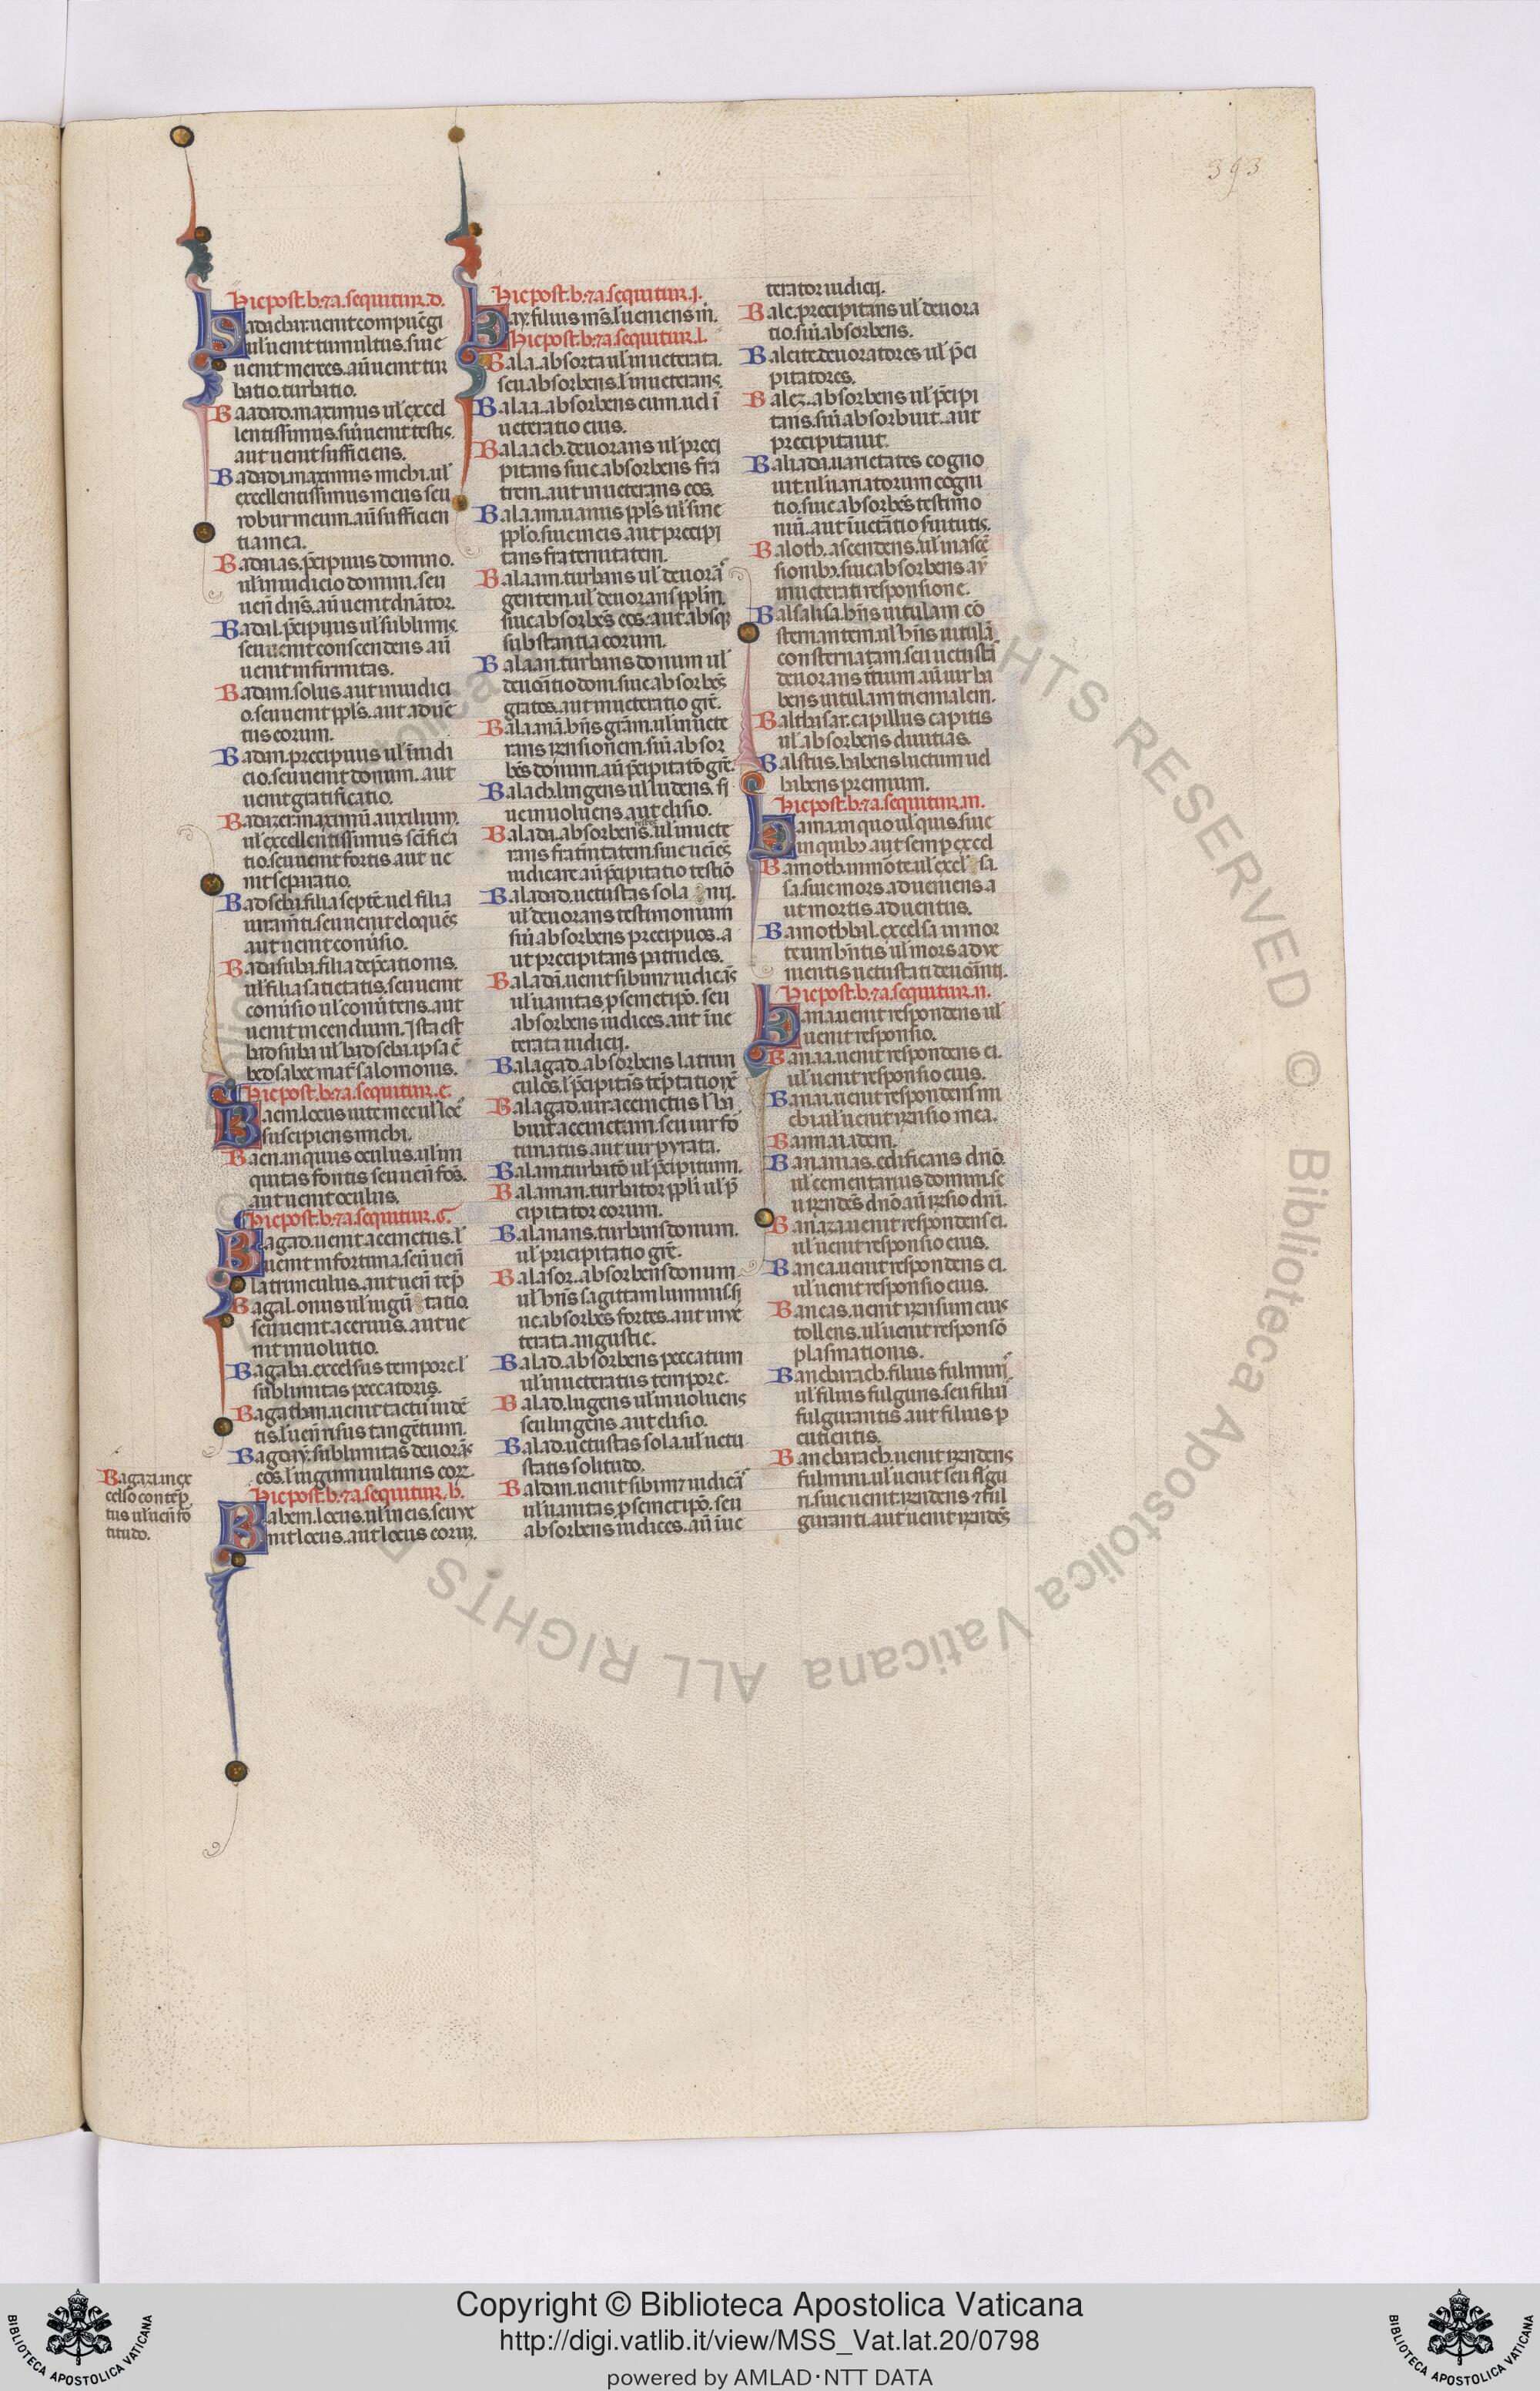 393
Hic post .b. ⁊ a. sequitur .d.
Badachar. uenit compūcgi
ul' uenit tumultus. siue
uenit merces. aū uenit tur
batio. turbatio.
Baadad. maximus ul' excel
lentissimus. siū uenit testis.
aut uenit sufficiens.
Badadi. maximus michi. ul'
excellentissimus meus seu
robur meum. aū sufficien
tia mea.
Badaias. p̄cipuus domino.
ul' in iudicio domini. seu
uen̄ dn̄s. aū uenit dn̄ator.
Badail. p̄cipuus ul' sublimis
seu uenit conscendens aū
uenit infirmitas.
Badam. solus aut in iudici
o. seu uenit ppl's. aut aduē
tus eorum.
Badan. precipuus ul' in iudi
cio. seu uenit donum. aut
uenit gratificatio.
Badazer. maximū auxilium.
ul' excellentissimus sc̄ifica
tio. seu uenit fortis aut ue
nit separatio.
Badseba. filia septē. uel filia
iuram̄ti. seu uenit eloquēs
aut uenit conū̄sio.
Badasuba. filia dep̄cationis.
ul' filia satietatis. seu uenit
conū̄sio ul' conū̄tens. aut
uenit incendium. Ista est
badsuba ul' badseba. ipsa ē
bedsabee mat̄ salomonis.
Hic post .b. ⁊ a. sequitur .e.
Baem. locus uite mee ul' loc'
suscipiens michi.
Baen. iniquus oculus. ul' ini
quitas fontis seu uen̄ fōs.
aut uenit oculus.
Hic post .b. ⁊ a. sequitur .G.
Bagad. uenit accinctus. l'
uenit in fortuna. seu uen̄
latrunculus. aut uen̄ tēp̄
Bagal. onus ul' ingū tatio.
seu uenit aceruus. aut ue
nit inuolutio.
Bagaba. excelsus tempore. l'
sublimitas peccatoris.
Bagathan. uenit tactū uidē
tis. l' uen̄ risus tangētium.
Bagday. sublimitas deuorās
eos. l' in gunnii ulturis eorꝝ.
Bagaza. in ex
cello contēp
tus ul' uen̄ fo
titudo.
Hic post .b. ⁊ a. sequitur .h.
Bahem. locus. ul' in eis. seu ue
nit locus. aut locus eoruꝝ.
Hic post .b. ⁊ a. sequitur .i.
Bay. filius m̄s. l' ueniens m̄.
Hic post .b. ⁊ a. sequitur .l.
Bala. absorta ul' inueterata.
seu absorbens. l' inueterans.
Balaa. absorbens eum. uel ī
ueteratio eius.
Balaach. deuorans ul' preci
pitans siue absorbens fra
trem. aut inueterans eos.
Balaam. uanus ppl's ul' sine
ppl'o. siue in eis aut precipi
tans fraternitatem.
Balaam. turbans ul' deuorās
gentem. ul' deuorans ppl'm.
siue absorbēs eos. aut absqꝫ
substantia eorum.
Balaan. turbans donum ul'
deuōtio dom. siue absorbēs
gratos. aut inueteratio grē.
Balaana. bn̄s gr̄am. ul' inuete
rans ꝶsionem. siū absor
bēs donum. aū p̄cipitatō grē.
Balach. lingens ul' ludens. si
ue inuoluens. aut elisio.
Balada. absorbens. ul' inuete
rans frat̄nitatem. siue ueiēs
iudicare aū p̄cipitatio testiō
Baladad. uetustas sola
ul' deuorans testimonium
siū absorbens precipuos. a
ut precipitans patrueles.
Baladā. uenit sibimet iudicās
ul' uanitas p semetip̄o. seu
absorbens iudices. aut īue
terata iudicij.
Balagad. absorbens latrun
culos. l' p̄cipitās tēp̄tationē
Balagad. uir accinctus l' ha
buit accinctam. seu uir fo
tunatus aut uir pyrata.
Balam. turbatō ul' p̄cipitium.
Balaman. turbator ppl'i ul' p̄
cipitator eorum.
Balanans. turbans donum.
ul' pricipitatio grē.
Balasor. absorbens donum
ul' bn̄s sagittam luminis. si
ue absorbēs fortes. aut inue
terata angustie.
Balad. absorbens peccatum
ul' inueteratus tempore.
Balad. lugens ul' inuoluens
seu lingens aut elisio.
Balad. uetustas sola. ul' uetu
statis solitudo.
Baldan. uenit sibimet iudicās
ul' uanitas p semetip̄o. seu
absorbens iudices. aū īue
terator iudicij.
Bale. precipitans ul' deuora
tio. siū absorbens.
Baleite. deuoratores ul' p̄ci
pitatores.
Balez. absorbens ul' p̄cipi
tans. siū absorbuit. aut
precipitauit.
Baliada. uarietates cogno
uit. ul' uanatorum cogni
tio. siue absorbēs testimo
niū. aut īuetāio siuitatis.
Baloth. ascendens. ul' in ascē
sionibꝫ. siue absorbens ay
inueterati responsione.
Balsalisa. bn̄s uitulam cō
sternantem. ul' bn̄s uitulā
consternatam. seu uetustā
deuorans itium. aū uir ha
bens uitulam triennalem.
Balthasar. capillus capitis
ul' absorbens diuitias.
Balstus. habens luctum uel
bibens premium.
Hic post .b. ⁊ a. sequitur .m.
Bama. in quo ul' quis. siue
in quibꝫ aut semp excel
Bamoth. in mōte. ul' excel sa.
sa. siue mors adueniens a
ut mortis aduentus.
Bamothbal. excelsa in mor
te uīhn̄tis ul' mors adue
nientis uetustati deuōīnti.
Hic post .b. ⁊ a. sequitur .n.
Bana. uenit respondens ul'
uenit responsio.
Banaa. uenit respondens ei.
ul' uenit responsio eius.
Banai. uenit respondens mi
chi ul' uenit ꝶsio mea.
Bannai. idem.
Banaias. edificans dn̄o.
ul' cementarius domini. se
u ꝶndēs dn̄o. aū ꝶsio dn̄i.
Banaza. uenit respondens ei.
ul' uenit responsio eius.
Banea. uenit respondens ei.
ul' uenit responsio eius.
Baneas. uenit ꝶnsum eius
tollens. ul' uenit responsō
plasmationis.
Banebarach. filius fulminis
ul' filius fulguris. seu filii
fulgurantis aut filius p
cutientis.
Banebarach. uenit ꝶndens
fulmini. ul' uenit seu fl'gu
ri. siue uenit ꝶndens et ful
guranti. aut uenit ꝶndēs
© Biblioteca Apostolica Vaticana ALL RIGHTS RESERVED
Copyright © Biblioteca Apostolica Vaticana
http://digi.vatlib.it/view/MSS_Vat.lat.20/0798
powered by AMLAD·NTT DATA
BIBLIOTECA APOSTOLICA VATICANA
BIBLIOTECA APOSTOLICA VATICANA